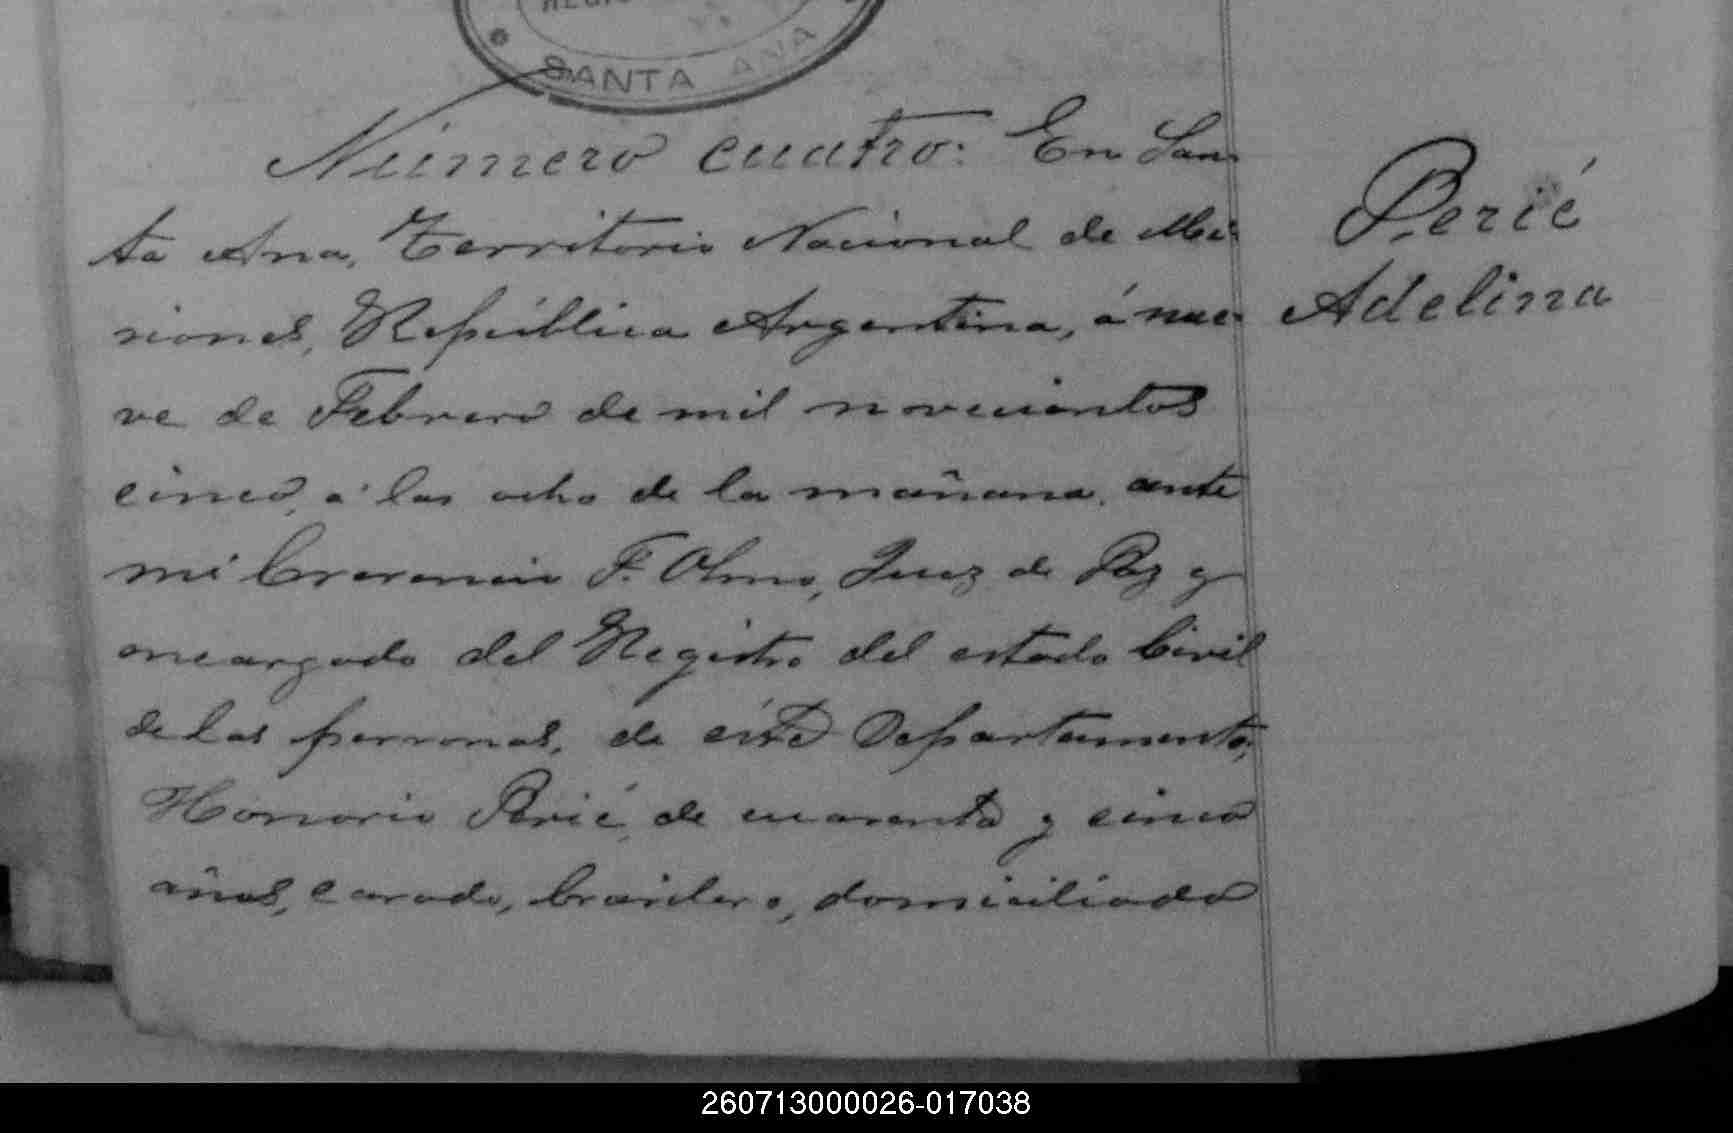 SANTA ANA
Número cuatro: En San-
ta Ana, Territorio Nacional de Mi-
siones, República Argentina, á nue-
ve de Febrero de mil novecientos
cinco, á las ocho de la mañana, ante
mi F. Olmo, Juez de Paz y
encargado del Registro del estado Civil
de las personas, de éste Departamento,
Honorio Perié, de cuarenta y cinco
años, casado, brasilero, domiciliado
Perié
Adelina
260713000026-017038